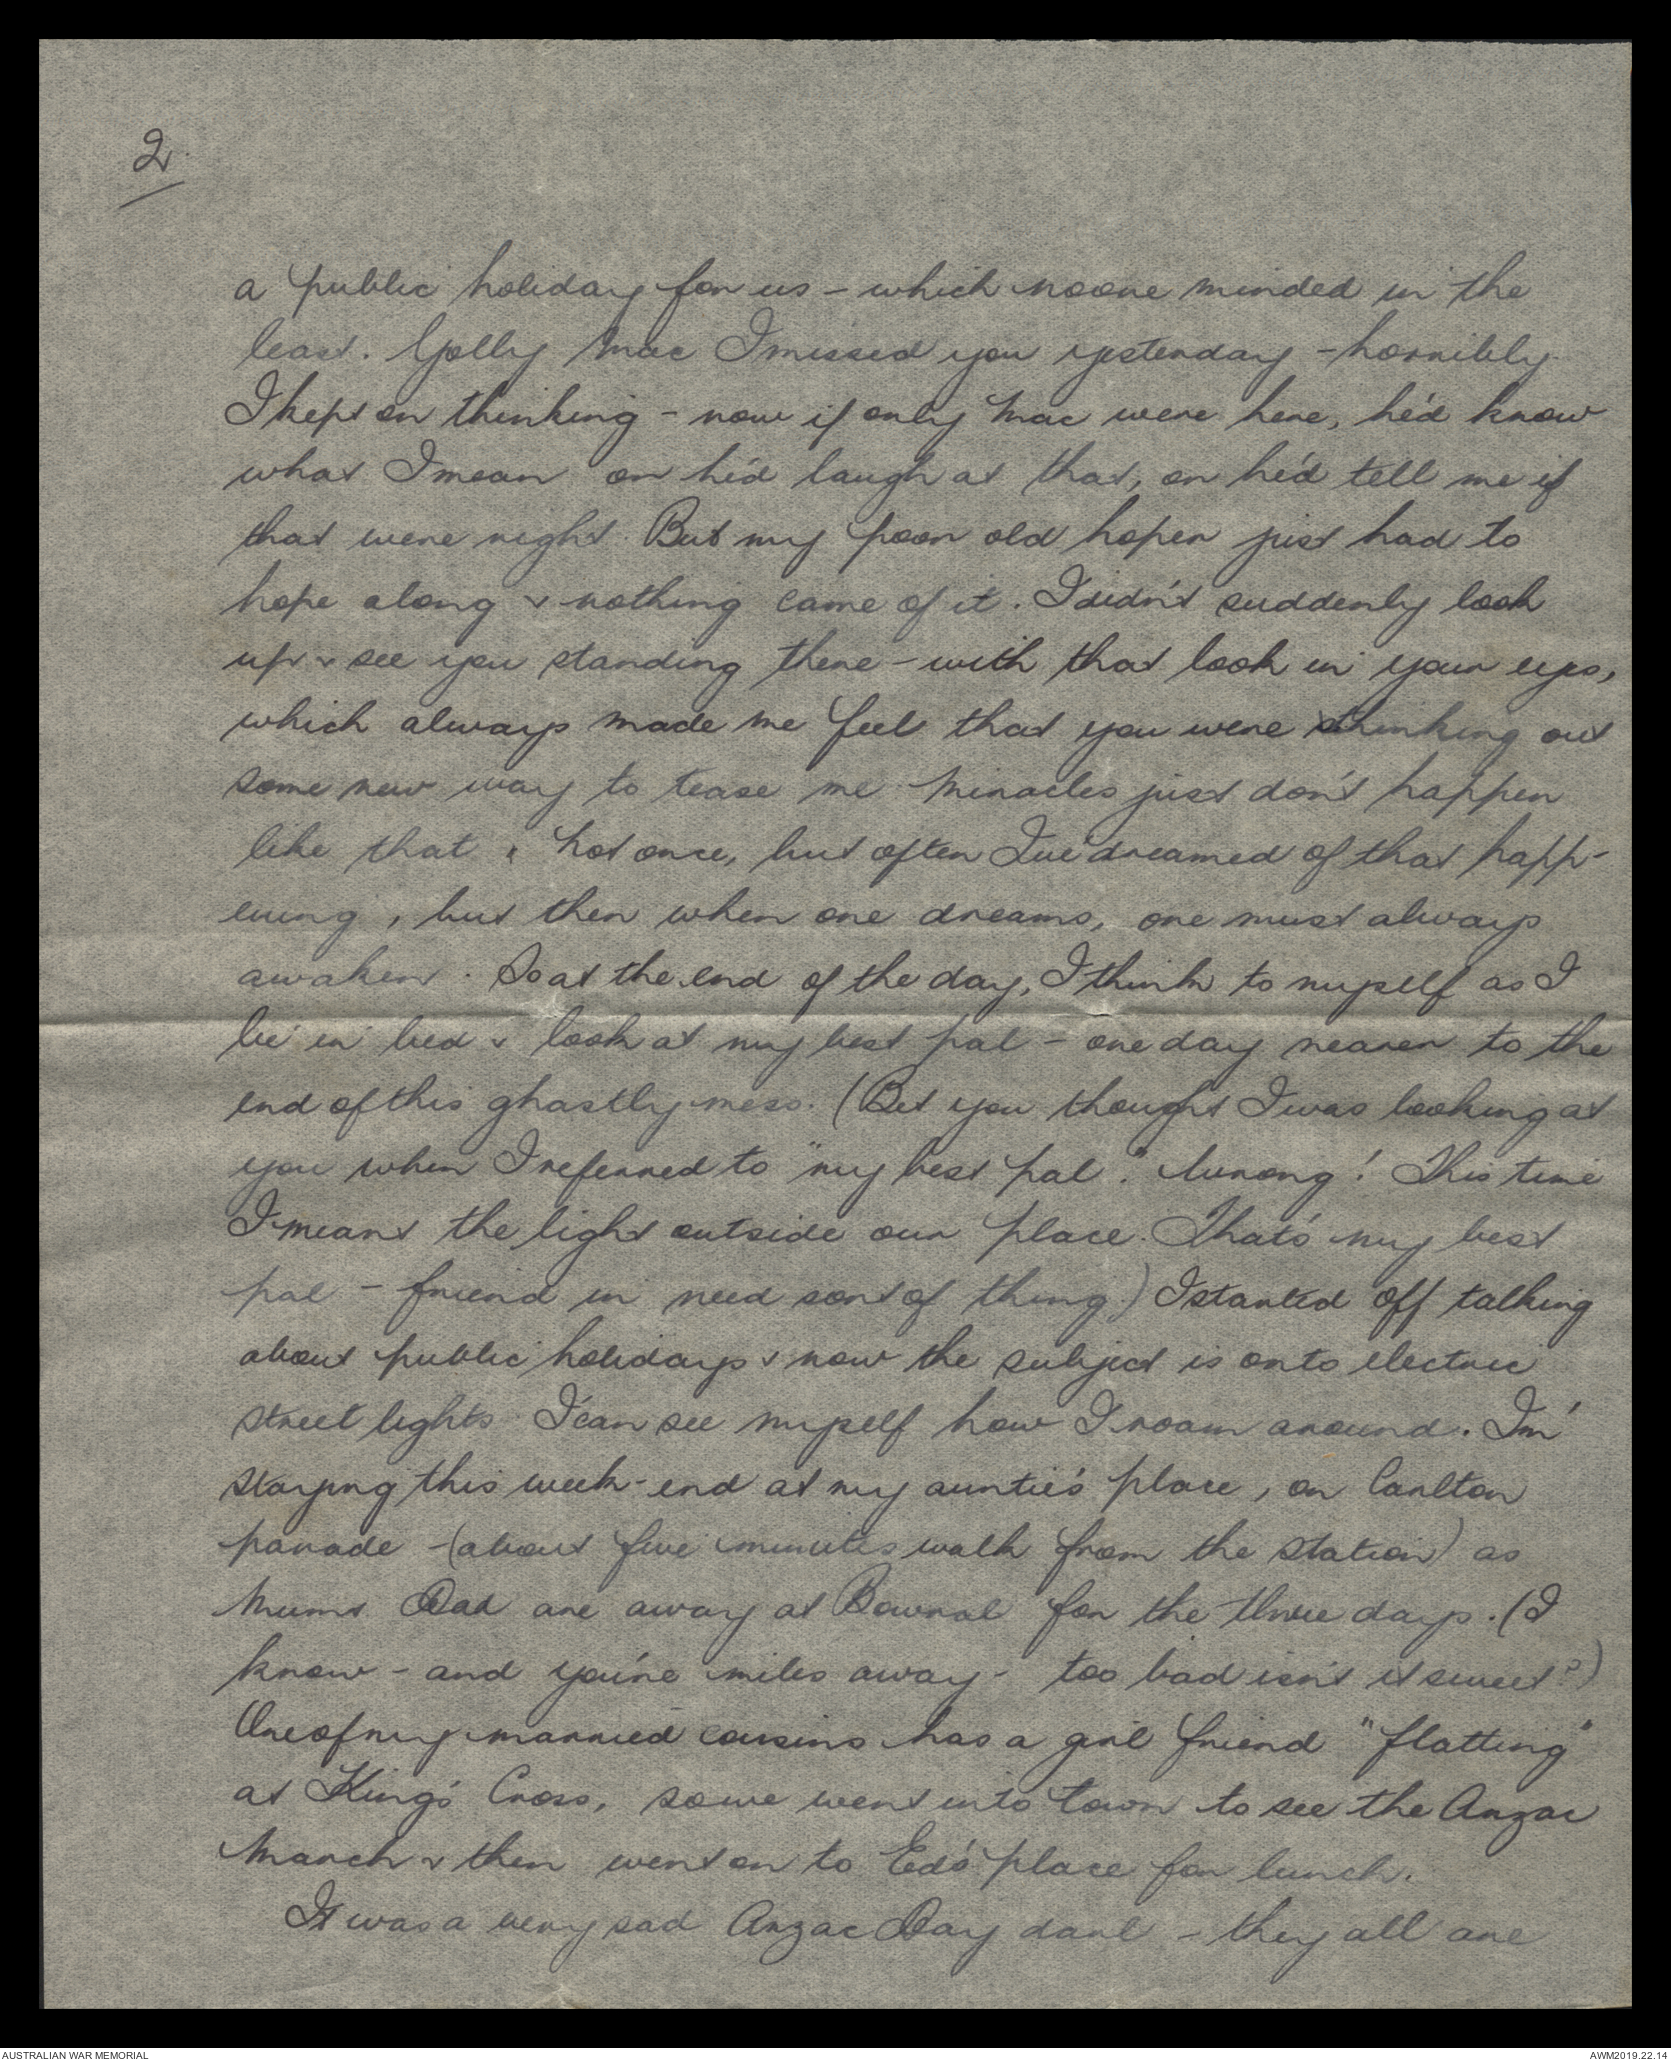 2
a public holiday for us - which noone minded in the
least. Golly Mac I missed you yesterday - horribly.
I kept on thinking - now if only Mac were here, he'd know
what I mean or he'd laugh at that, or he'd tell me if
that were right. But my poor old hoper just had to
hope along & nothing came of it. I didn't suddenly look
up & see you standing there - with that look in your eyes,
which always made me feel that you were thinking out
some new way to tease me. Miracles just don't happen
like that. Not once, but often I've dreamed of that happ-
ening, but then when one dreams, one must always
awaken. So at the end of the day, I think to myself as I
lie in bed & look at my best pal - one day nearer to the
end of this ghastly mess. (Bet you thought I was looking at
you when I referred to "my best pal." Wrong! This time
I meant the light outside our place. That's my best
pal - friend in need sort of thing) I started off talking
about public holidays & now the subject is onto electric
street lights. I can see myself how I roam around. I'm
staying this week-end at my auntie's place, on Carlton
parade - (about five minutes walk from the station) as
Mum & Dad are away at Bowral for the three days. (I
know - and you're miles away - too bad isn't it sweet?)
One of my married cousins has a girl friend "flatting"
at King's Cross, so we went into town to see the Anzac
March & then went on to Ed's place for lunch.
It was a very sad Anzac Day darl - they all are
AUSTRALIAN WAR MEMORIAL
AWM2019.22.14